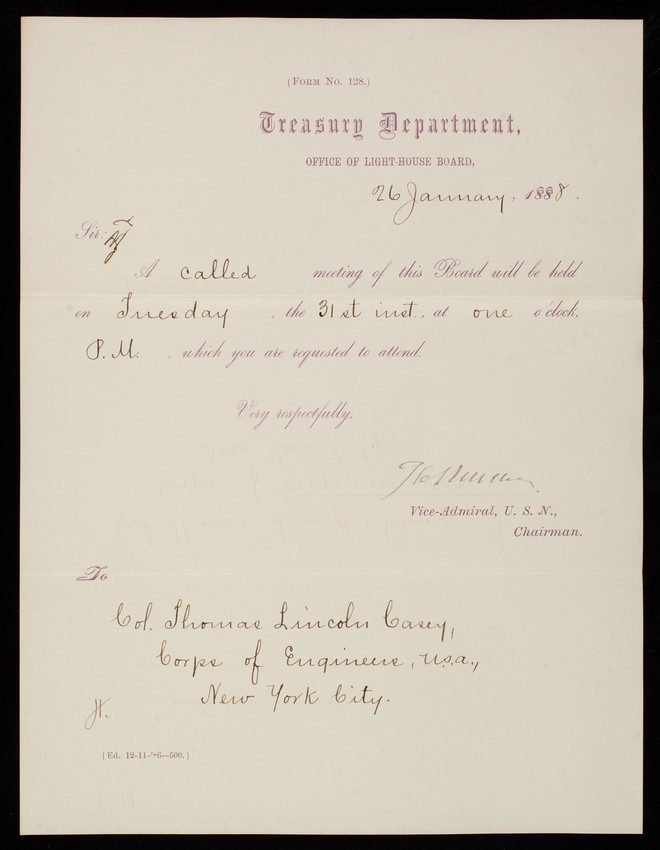 (Form No. 128.)
Treasury Department,
OFFICE OF LIGHT-HOUSE BOARD,
26 January, 1888.
Sir:
A called meeting of this Board will be held
on Tuesday, the 31st inst., at one o'clock,
P.M., which you are requested to attend.
Very respectfully,
Vice-Admiral, U. S. N.,
Chairman.
To
Col. Thomas Lincoln Casey,
Corps of Engineers, U.S.A.,
New York City.
H.
[Ed. 12-11-'86—500.]